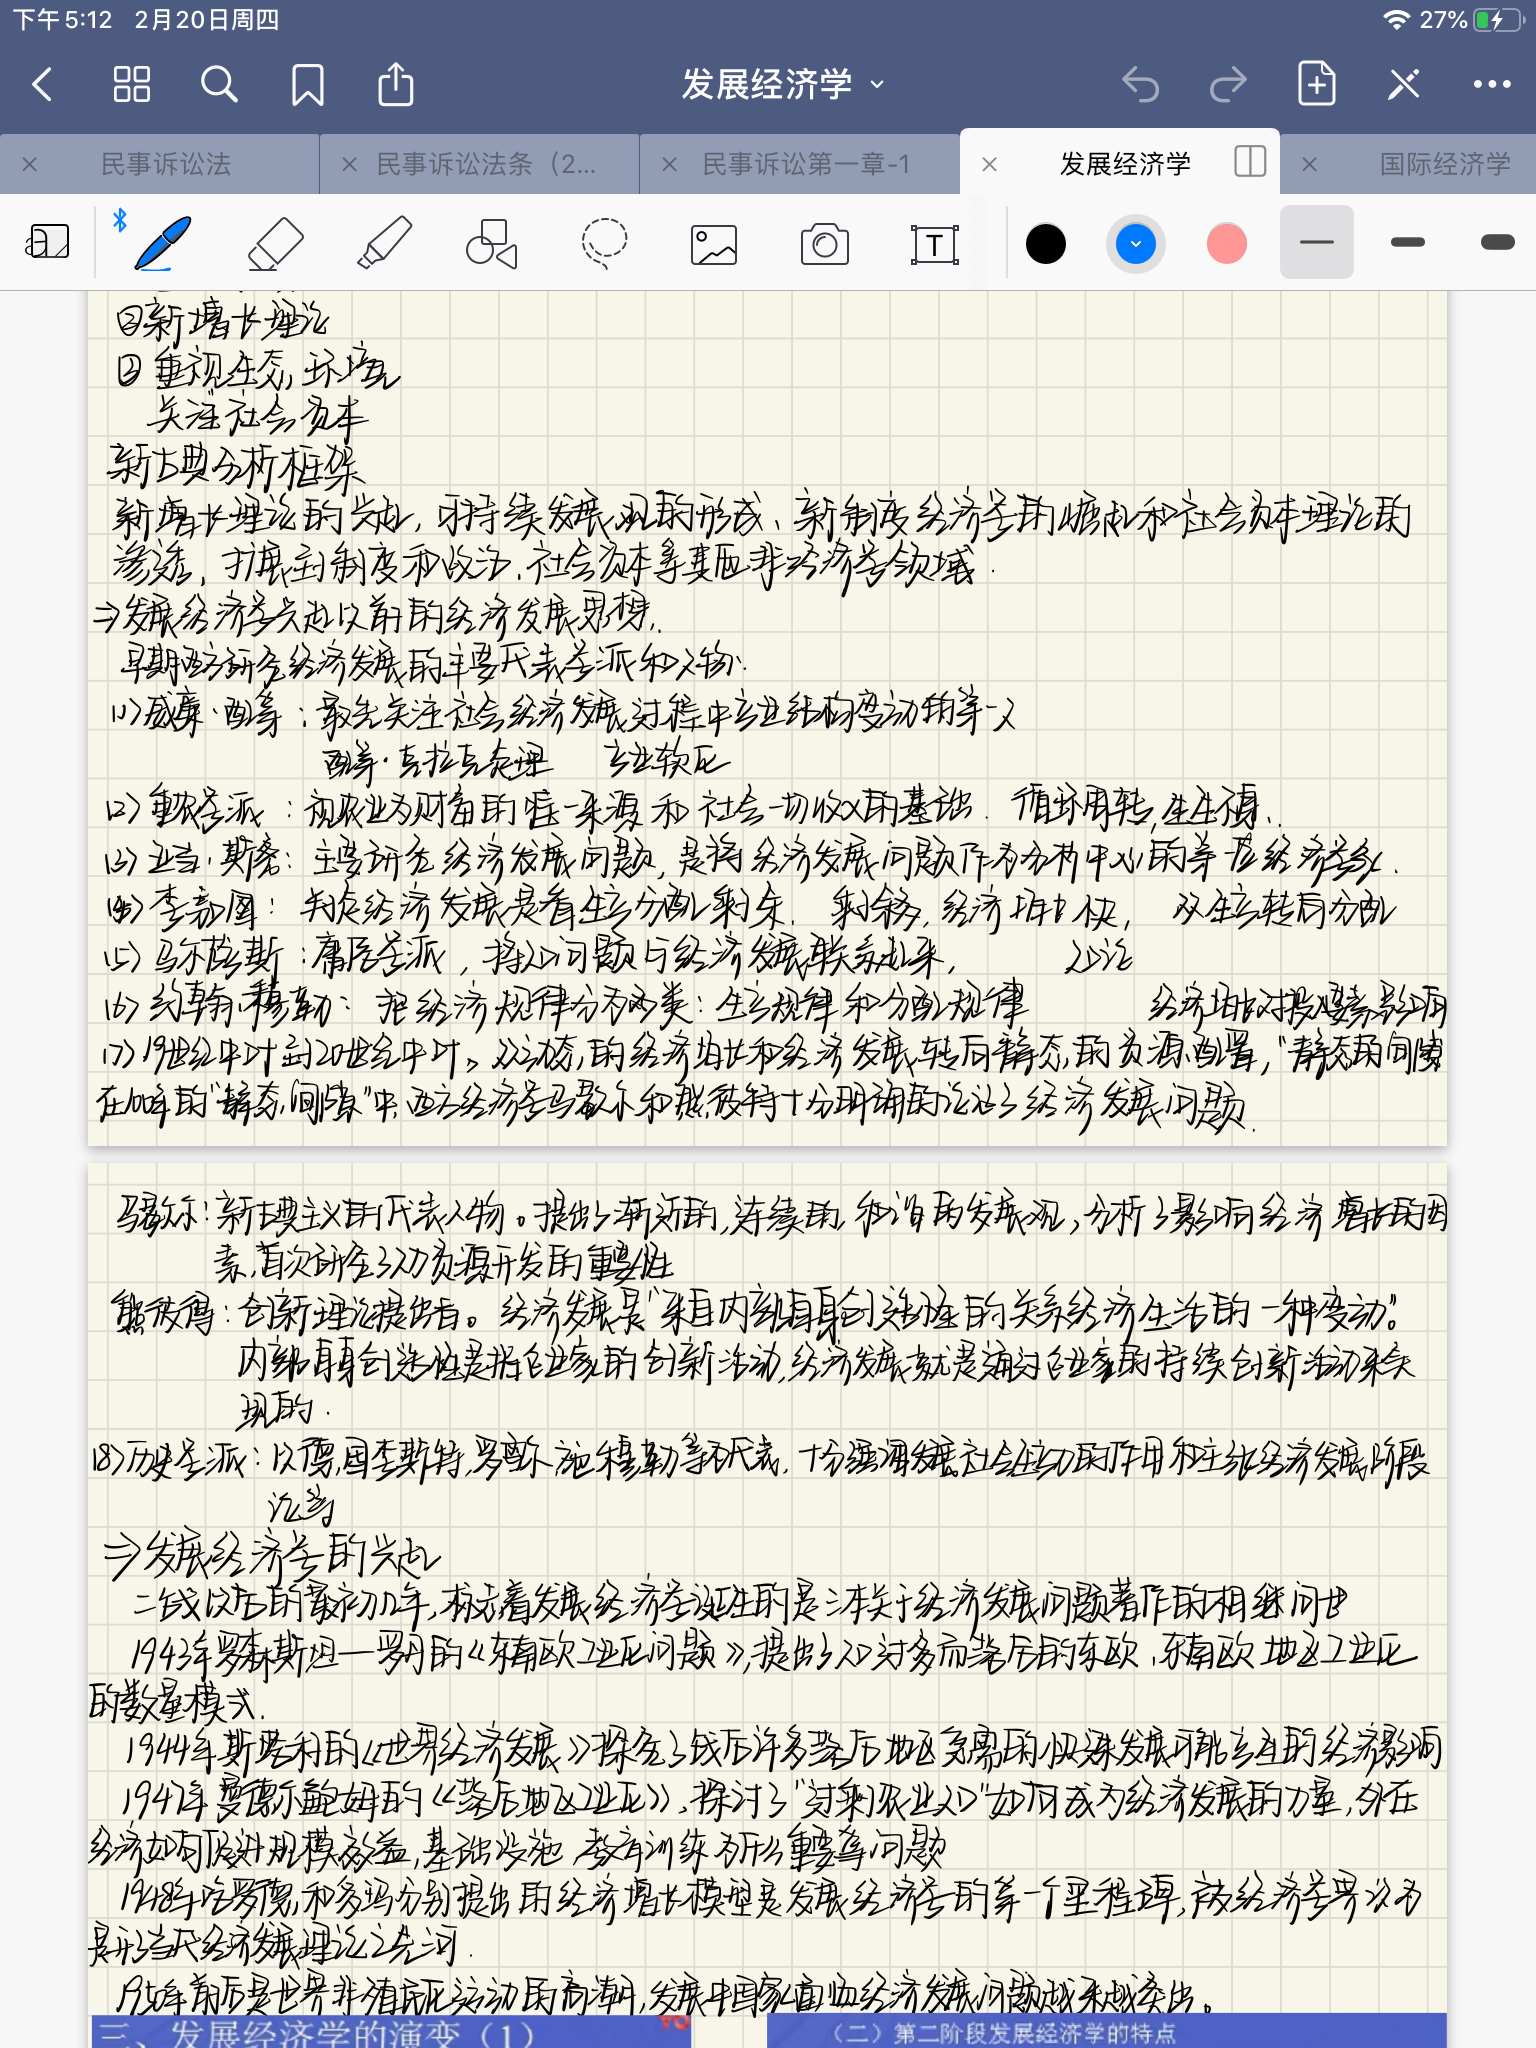 下午5:12 2月20日周四 27%
发展经济学
民事诉讼法 民事诉讼法条（2... 民事诉讼第一章-1 发展经济学 国际经济学
②新增长理论
③重视生态,环境
关注社会资本
新古典分析框架
新增长理论的兴起,可持续发展观的形成、新制度经济学的崛起和社会资本理论的
渗透,扩展到制度和政治.社会资本等重要非经济学领域.
⇒发展经济学兴起以前的经济发展思想.
早期西方研究经济发展的主要代表学派和人物:
(1)威廉·配第:最先关注社会经济发展过程中产业结构变动的第一人
配第·克拉克定理 产业软化
(2)重农学派:视农业为财富的唯一来源和社会一切收入的基础. 循环周转,生生不息.
(3)亚当·斯密:主要研究经济发展问题,是将经济发展问题作为分析中心的第一位经济学家.
(4)李嘉图:判定经济发展是看生产分配剩余. 剩余多,经济增长快, 从生产转向分配
(5)马尔萨斯:庸俗学派,将人口问题与经济发展联系起来, 人口论
(6)约翰·穆勒:把经济规律分为两类:生产规律和分配规律 经济增长对投入要素影响
(7)19世纪中叶到20世纪中叶。从动态的经济增长和经济发展转向静态的资源配置,"静态的间隙
在100年的"静态间隙"中,西方经济学马歇尔和熊彼特十分明确的论述了经济发展问题.
马歇尔:新古典主义的代表人物。提出了渐进的,连续的和谐的发展观,分析了影响经济增长的因
素,首次研究了人力资源开发的重要性
熊彼得:创新理论提出者。经济发展是"来自内部自身创造性的关系经济生活的一种变动"。
内部自身创造性是指企业家的创新活动,经济发展就是通过企业家的持续创新活动来实
现的.
(8)历史学派:以德国李斯特,罗雪尔,施穆勒等为代表,十分强调发展社会生产力的作用和主张经济发展阶段
论等
⇒发展经济学的兴起
二战以后的最初几年,标志着发展经济学诞生的是三本关于经济发展问题著作的相继问世
1943年罗森斯坦—罗丹的《东南欧工业化问题》,提出了人口过多而落后的东欧、东南欧地区工业化
的数量模式.
1944年斯塔利的《世界经济发展》探究了战后许多落后地区急需的快速发展可能产生的经济影响
1947年曼德尔鲍姆的《落后地区工业化》,探讨了"过剩农业人口"如何成为经济发展的力量,外在
经济如何促进规模效益,基础设施,教育训练为什么重要等问题
1948年哈罗德和多玛分别提出的经济增长模型是发展经济学的第一个里程碑,被经济学界认为
是开当代经济发展理论之先河.
1950年前后是世界非殖民化运动的高潮,发展中国家面临经济发展问题越来越突出。
三、发展经济学的演变（1）
（二）第二阶段发展经济学的特点